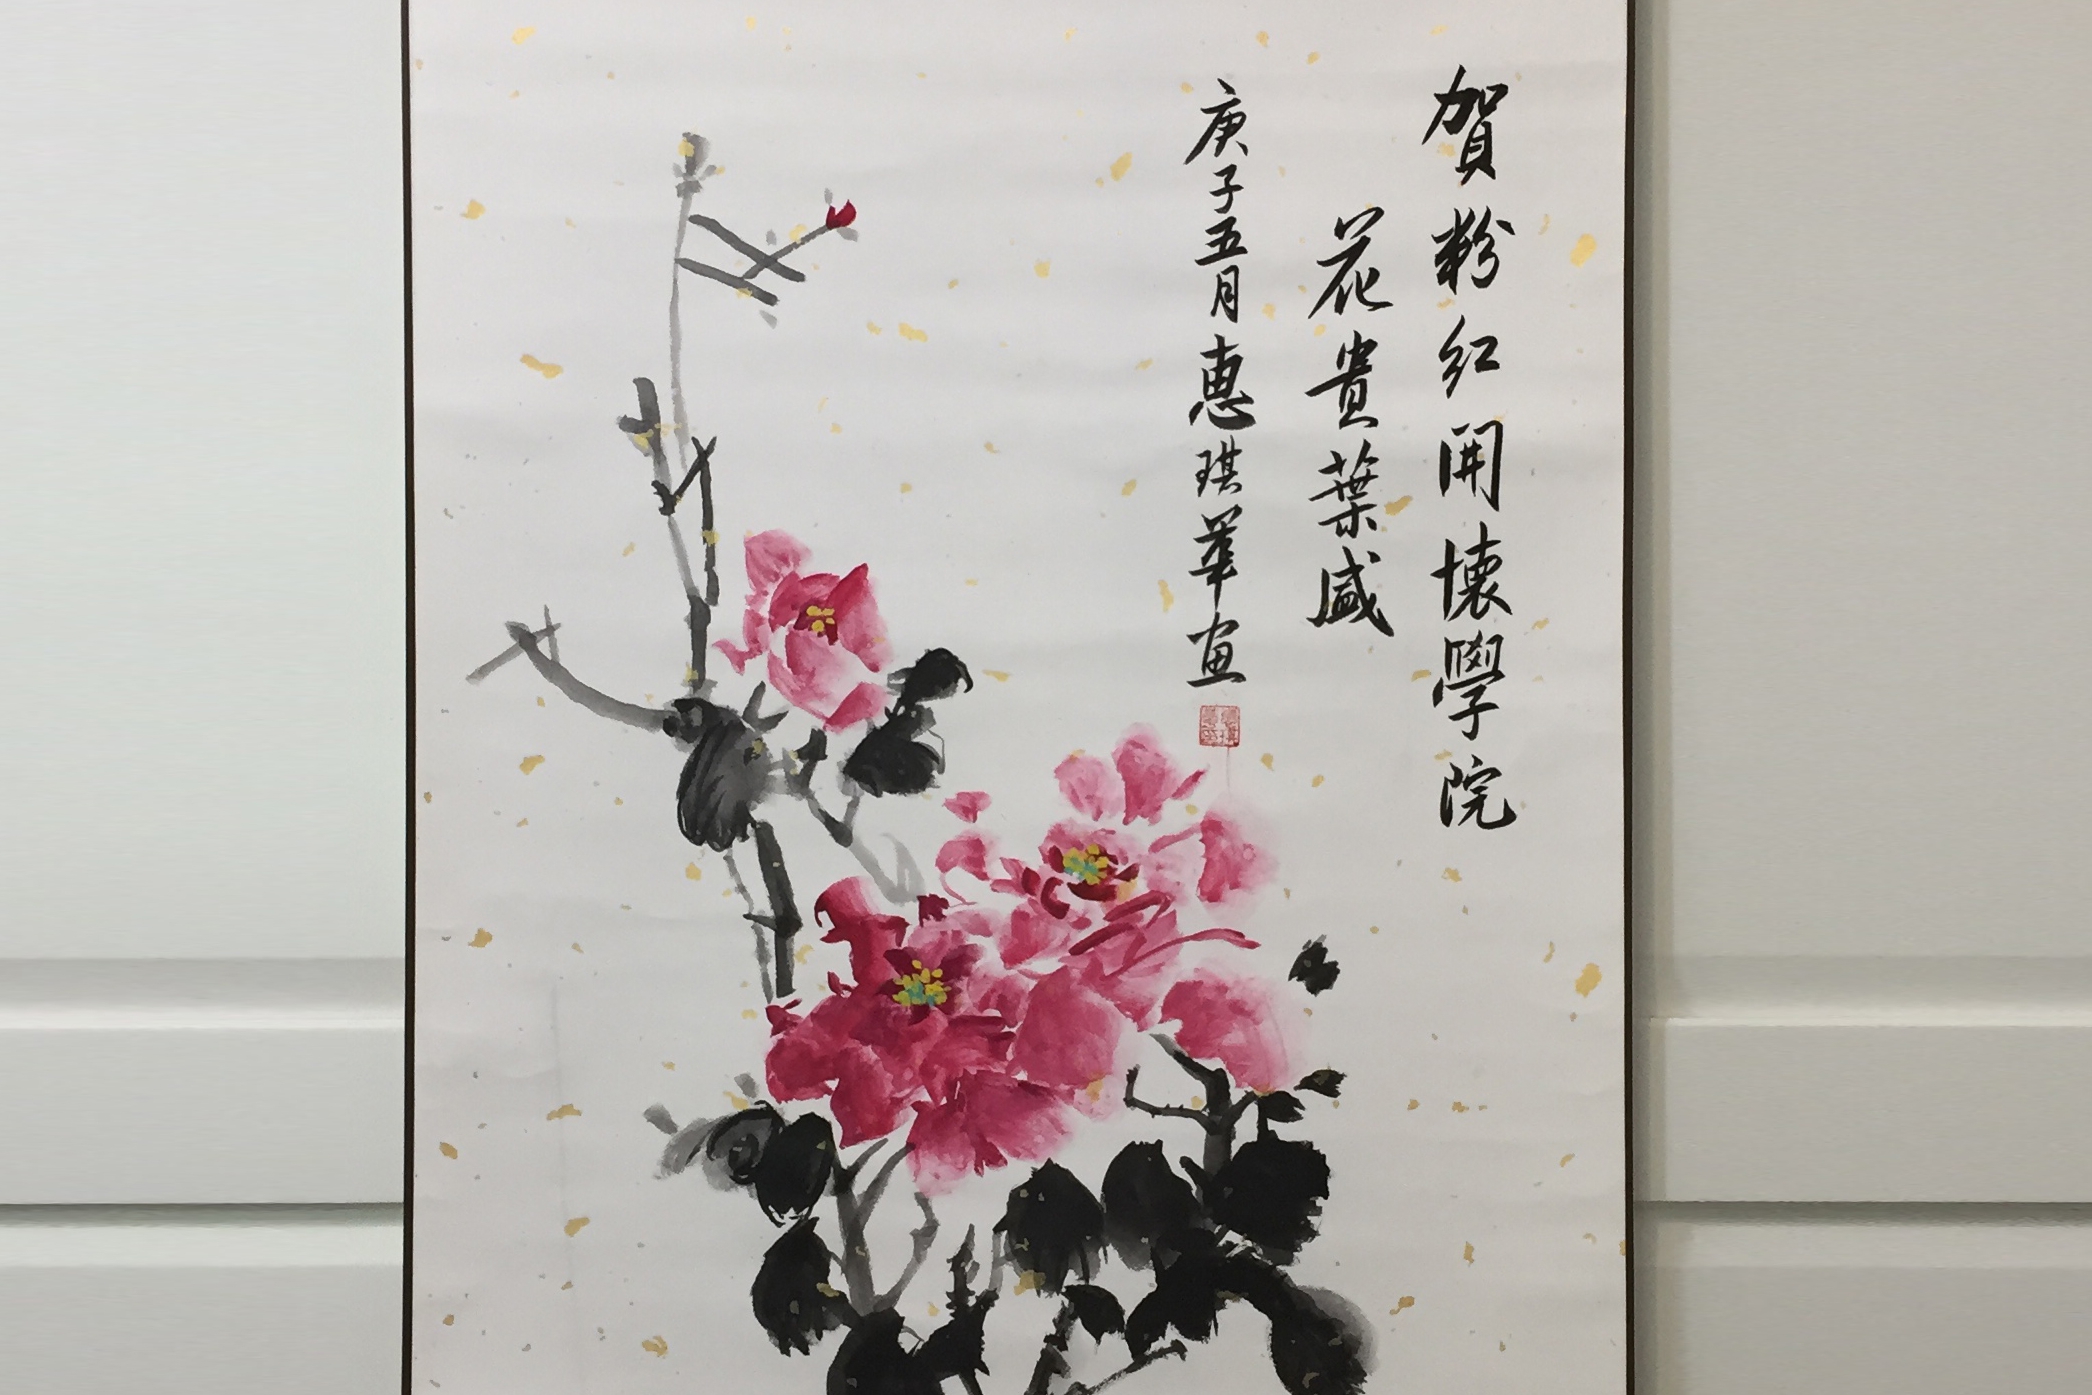 賀粉红開懷學院
花貴葉盛
庚子五月惠琪華画